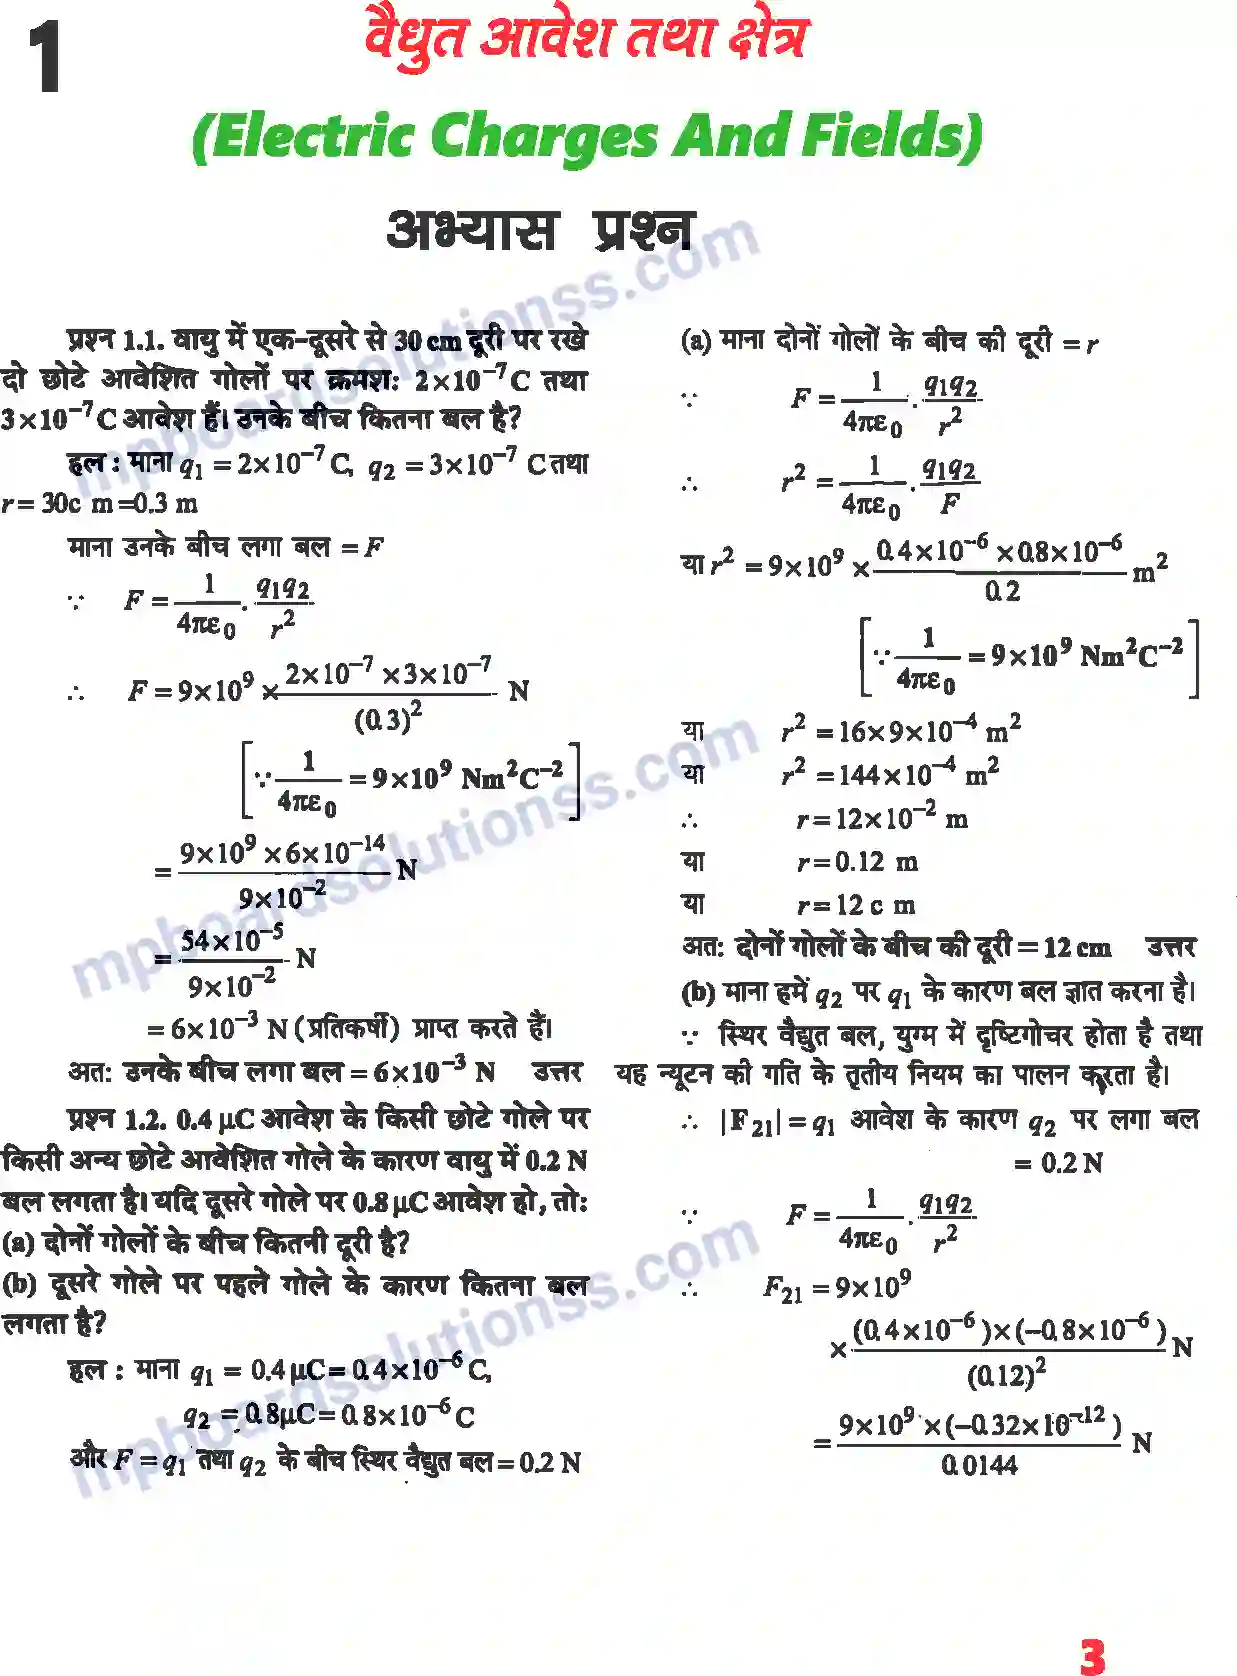 1
वैधुत आवेश तथा क्षेत्र
(Electric Charges And Fields)
अभ्यास प्रश्न
प्रश्न 1.1. वायु में एक-दूसरे से 30 cm दूरी पर रखे
दो छोटे आवेशित गोलों पर क्रमश: 2×10⁻⁷ C तथा
3×10⁻⁷ C आवेश हैं। उनके बीच कितना बल है?
हल : माना q₁ = 2×10⁻⁷ C, q₂ = 3×10⁻⁷ C तथा
r = 30c m =0.3 m
माना उनके बीच लगा बल = F
∵ F = 1/4πε₀ . q₁q₂/r²
∴ F = 9×10⁹ × 2×10⁻⁷ ×3×10⁻⁷/(0.3)² N
[∵ 1/4πε₀ = 9×10⁹ Nm²C⁻²]
= 9×10⁹ ×6×10⁻¹⁴/9×10⁻² N
= 54×10⁻⁵/9×10⁻² N
= 6×10⁻³ N (प्रतिकर्षी) प्राप्त करते हैं।
अत: उनके बीच लगा बल = 6×10⁻³ N उत्तर
प्रश्न 1.2. 0.4 μC आवेश के किसी छोटे गोले पर
किसी अन्य छोटे आवेशित गोले के कारण वायु में 0.2 N
बल लगता है। यदि दूसरे गोले पर 0.8 μC आवेश हो, तो:
(a) दोनों गोलों के बीच कितनी दूरी है?
(b) दूसरे गोले पर पहले गोले के कारण कितना बल
लगता है?
हल : माना q₁ = 0.4 μC = 0.4×10⁻⁶ C,
q₂ = 0.8μC = 0.8×10⁻⁶ C
और F = q₁ तथा q₂ के बीच स्थिर वैद्युत बल = 0.2 N
(a) माना दोनों गोलों के बीच की दूरी = r
∵ F = 1/4πε₀ . q₁q₂/r²
∴ r² = 1/4πε₀ . q₁q₂/F
या r² = 9×10⁹ × 0.4×10⁻⁶ ×0.8×10⁻⁶/0.2 m²
[∵ 1/4πε₀ = 9×10⁹ Nm²C⁻²]
या r² = 16×9×10⁻⁴ m²
या r² = 144×10⁻⁴ m²
∴ r = 12×10⁻² m
या r = 0.12 m
या r = 12 c m
अत: दोनों गोलों के बीच की दूरी = 12 cm उत्तर
(b) माना हमें q₂ पर q₁ के कारण बल ज्ञात करना है।
∵ स्थिर वैद्युत बल, युग्म में दृष्टिगोचर होता है तथा
यह न्यूटन की गति के तृतीय नियम का पालन करता है।
∴ |F₂₁| = q₁ आवेश के कारण q₂ पर लगा बल
= 0.2 N
∵ F = 1/4πε₀ . q₁q₂/r²
∴ F₂₁ = 9×10⁹
× (0.4×10⁻⁶)×(−0.8×10⁻⁶)/(0.12)² N
= 9×10⁹ ×(−0.32×10⁻¹²)/0.0144 N
3
mpboardsolutionss.com
mpboardsolutionss.com
mpboardsolutionss.com